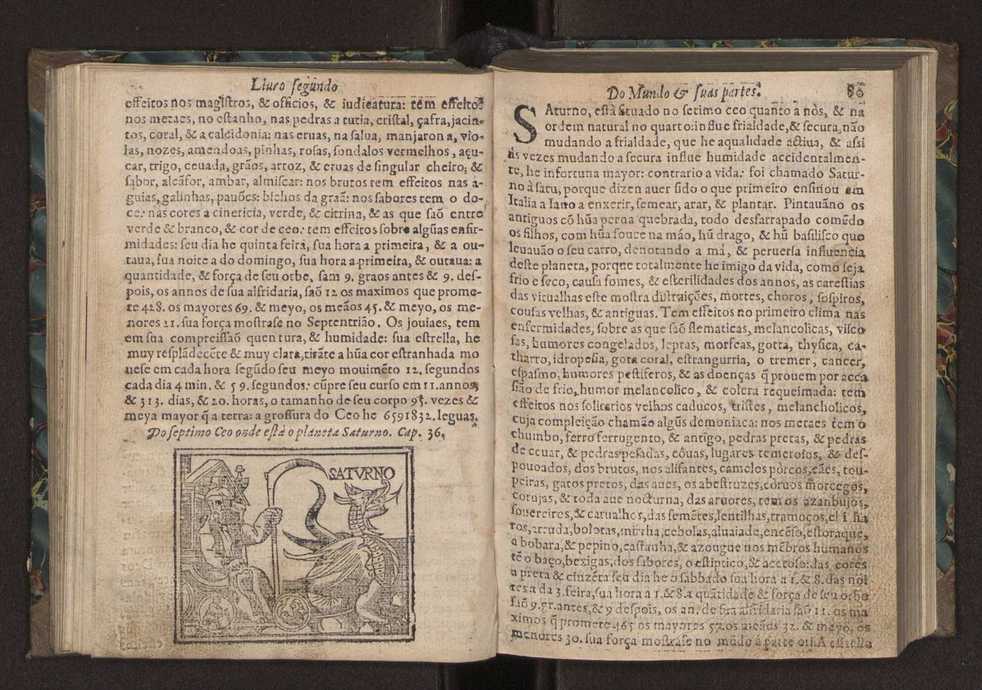 Liuro segundo
effeitos nos magistros, & officios, & iudicatura: tem effeitos
nos metaes, no estanho, nas pedras a tutia, cristal, çafra, jacin-
tos, coral, & a calcidonia: nas eruas, na salua, manjarona, vio-
las, nozes, amendoas, pinhas, rosas, sondalos vermelhos, açu-
car, trigo, ceuada, grãos, arroz, & eruas de singular cheiro; &
sabor, alcáfor, ambar, almiscar: nos brutos tem effeitos nas a-
guias, galinhas, pauões: bichos da graã: nos sabores tem o do-
ce: nas cores a cinericia, verde, & citrina, & as que saõ entre
verde & branco, & cor de ceo: tem effeitos sobre algũas enfir-
midades: seu dia he quinta feira, sua hora a primeira, & a ou-
taua, sua noite a do domingo, sua hora a primeira, & outaua: a
quantidade, & força de seu orbe, sam 9. graos antes & 9. des-
pois, os annos de sua alfridaria, saõ 12 os maximos que prome-
te 428. os mayores 69. & meyo, os meãos 45. & meyo, os me-
nores 21. sua força mostrase no Septentrião. Os jouiaes, tem
em sua compreissaõ quentura, & humidade: sua estrella, he
muy resplãdecẽte & muy clara, tirãte a hũa cor estranhada mo
uese em cada hora segũdo seu meyo mouimẽto 12. segundos
cada dia 4 min. & 59. segundos: cũpre seu curso em 11. annos,
& 313. dias, & 20. horas, o tamanho de seu corpo 95. vezes &
meya mayor q̃ a terra: a grossura do Ceo he 6591832. leguas.
Do septimo Ceo onde está o planeta Saturno. Cap. 36.
SATVRNO
Do Mundo & suas partes. 80
SAturno, está situado no setimo ceo quanto a nòs, & na
ordem natural no quarto: influe frialdade, & secura, não
mudando a frialdade, que he aqualidade actiua, & assi
ás vezes mudando a secura influe humidade accidentalmen-
te, he infortuna mayor: contrario a vida: foi chamado Satur-
no à satu, porque dizen auer sido o que primeiro ensinou em
Italia a Iano a enxerir, semear, arar, & plantar. Pintauãno os
antiguos cõ hũa perna quebrada, todo desfarrapado comẽdo
os filhos, com hũa fouce na máo, hũ drago, & hũ basilisco que
leuauão o seu carro, denotando a má, & peruersa influencia
deste planeta, porque totalmente he imigo da vida, como seja
frio e seco, causa fomes, & esterilidades dos annos, as carestias
das vitualhas este mostra distruições, mortes, choros, sospiros,
cousas velhas, & antiguas. Tem effeitos no primeiro clima nas
enfermidades, sobre as que saõ flematicas, melancolicas, visco
sas, humores congelados, lepras, morfeas, gotta, thysica, ca-
tharro, idropesia, gota coral, estrangurria, o tremer, cancer,
espasmo, humores pestiferos, & as doenças q̃ prouem por acca
sião de frio, humor melancolico, & colera requeimada: tem
effeitos nos solitarios velhos caducos, tristes, melancholicos,
cuja compleição chamão algũs demoniaca: nos metaes tem o
chumbo, ferro ferrugento, & antigo, pedras pretas, & pedras
de ceuar, & pedras pesadas, couas, lugares temerosos, & des-
pouoados, dos brutos, nos alifantes, camelos porcos, cães, tou-
peiras, gatos pretos, das aues, os abestruzes, coruos morcegos,
corujas, & toda aue nocturna, das aruores, tem os azanbujos,
souereiros, & carualhos, das semẽtes, lentilhas, tramoços,
arruda, bolotas, mirrha, cebolas, aluaiade, encẽso, estoraque,
a bobara, & pepino, castanha, & azougue nos mẽbros humanos
tẽ o baço, bexigas, dos sabores, o estiptico, & acetoso: das cores
a preta & cinzẽta seu dia he o sabbado sua hora a 1. & 8. das noi
tes a da 3. feira, sua hora a 1. & 8. a quãtidade & força de seu orbe
são 9. gr. antes, & 9 despois, os an. de sua alfridaria saõ 11. os ma
ximos q̃ promete 465 os mayores 57. os meãos 32. & meyo, os
menores 30. sua força mostrase no mũdo á parte A estrella